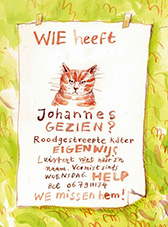 WIE heeft
Johannes
GEZIEN?
Roodgestreepte Kater
EIGENWIJS
Luistert niet naar z'n
naam. Vermist sinds
WOENSDAG. HELP
Bel 06 7911134
WE missen hem!